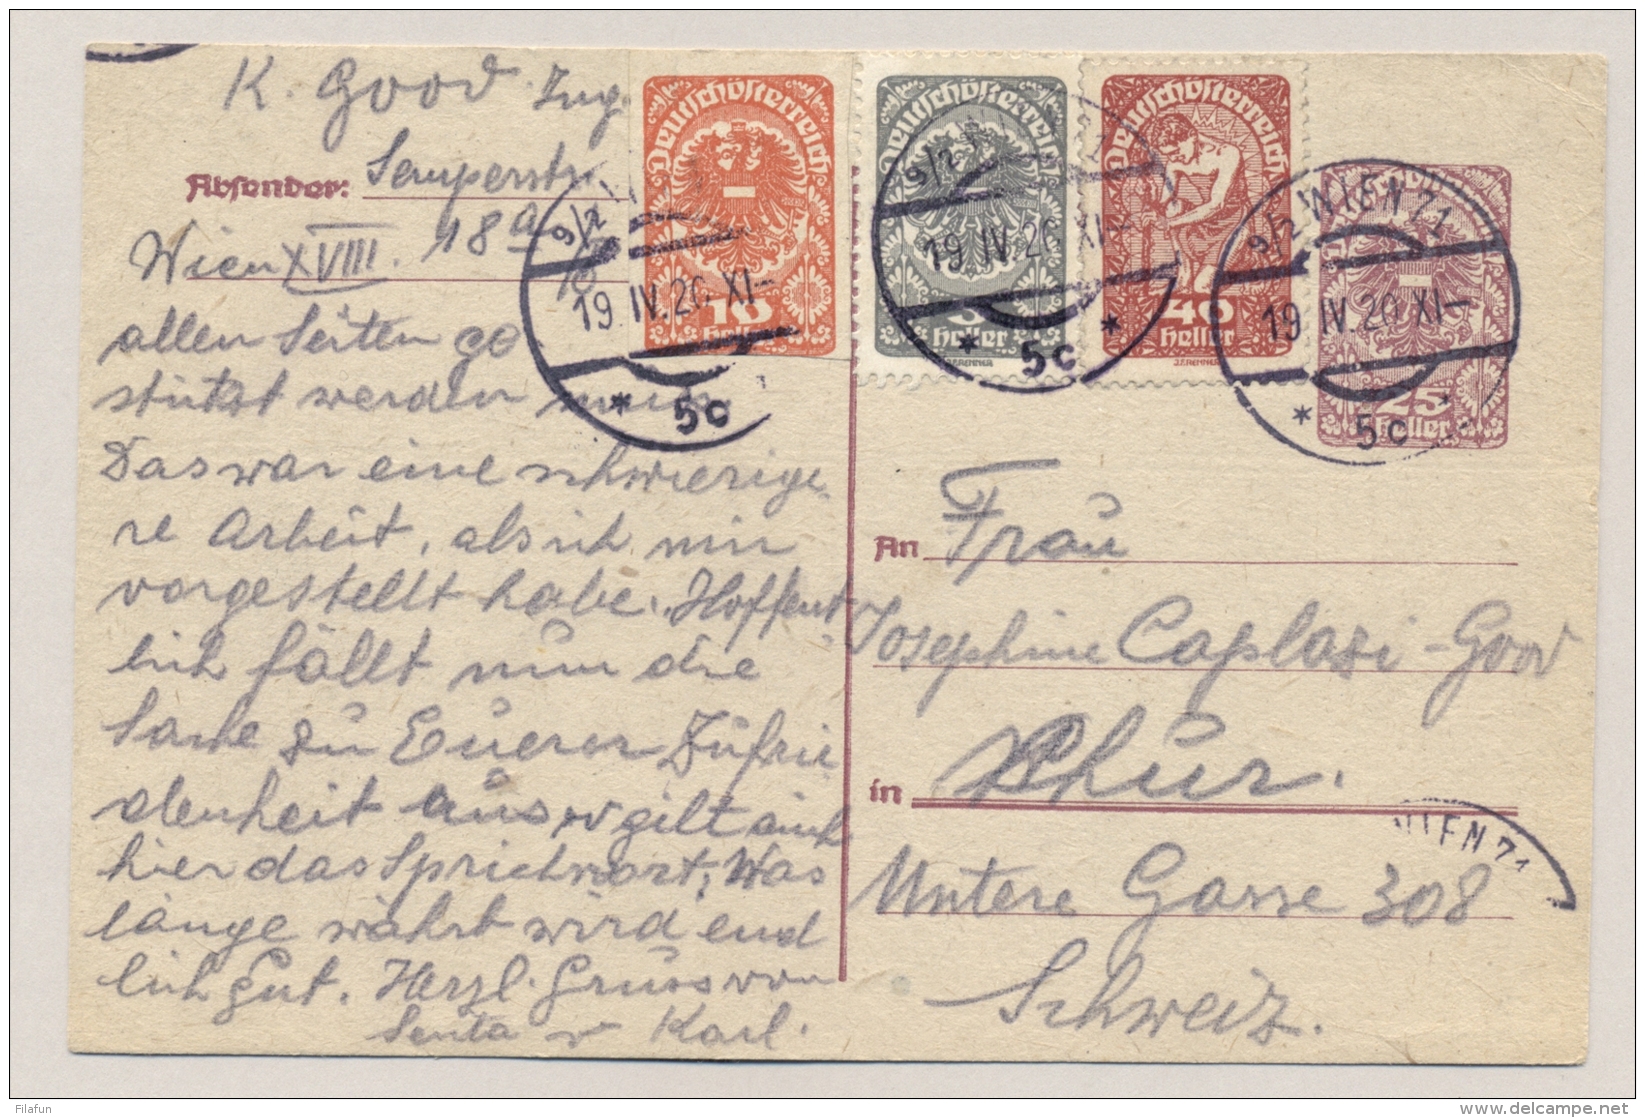 K. Good Ing.
Absender: Semperstr.
18a
Wien XVIII.
allen Seiten ge
stützt werden muss.
Das war eine schwierige-
re Arbeit, als ich mir
vorgestellt habe. Hoffent
lich fällt nun die
Sache zu Euerer Zufrie
denheit aus gilt auch
hier das Sprichwort, Was
lange währt wird end
lich gut. Herzl. Gruss von
Senta u Karl.
Deutschösterreich
10
Heller
Deutschösterreich
5
Heller
J.F.RENNER
Deutschösterreich
40
Heller
J.F.RENNER
25
Heller
9/2
19.IV.20.XI-
* 5c
9/2
19.IV.20.XI-
* 5c *
9/2 WIEN 71
19.IV.20.XI-
* 5c *
An Frau
Josephine Caplazi-Good
in Chur.
WIEN 71
Untere Gasse 308
Schweiz.
Filafun
www.delcampe.net